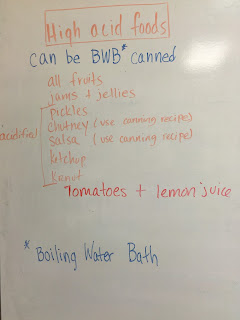 High acid foods
can be BWB* canned
all fruits
jams + jellies
pickles
chutney (use canning recipe)
salsa (use canning recipe)
ketchup
kraut
acidified
Tomatoes + lemon juice
* Boiling Water Bath